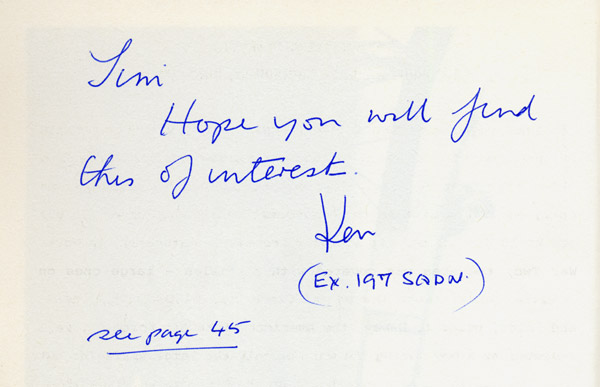 Jim
Hope you will find
this of interest.
Ken
(Ex. 197 SQDN.)
see page 45